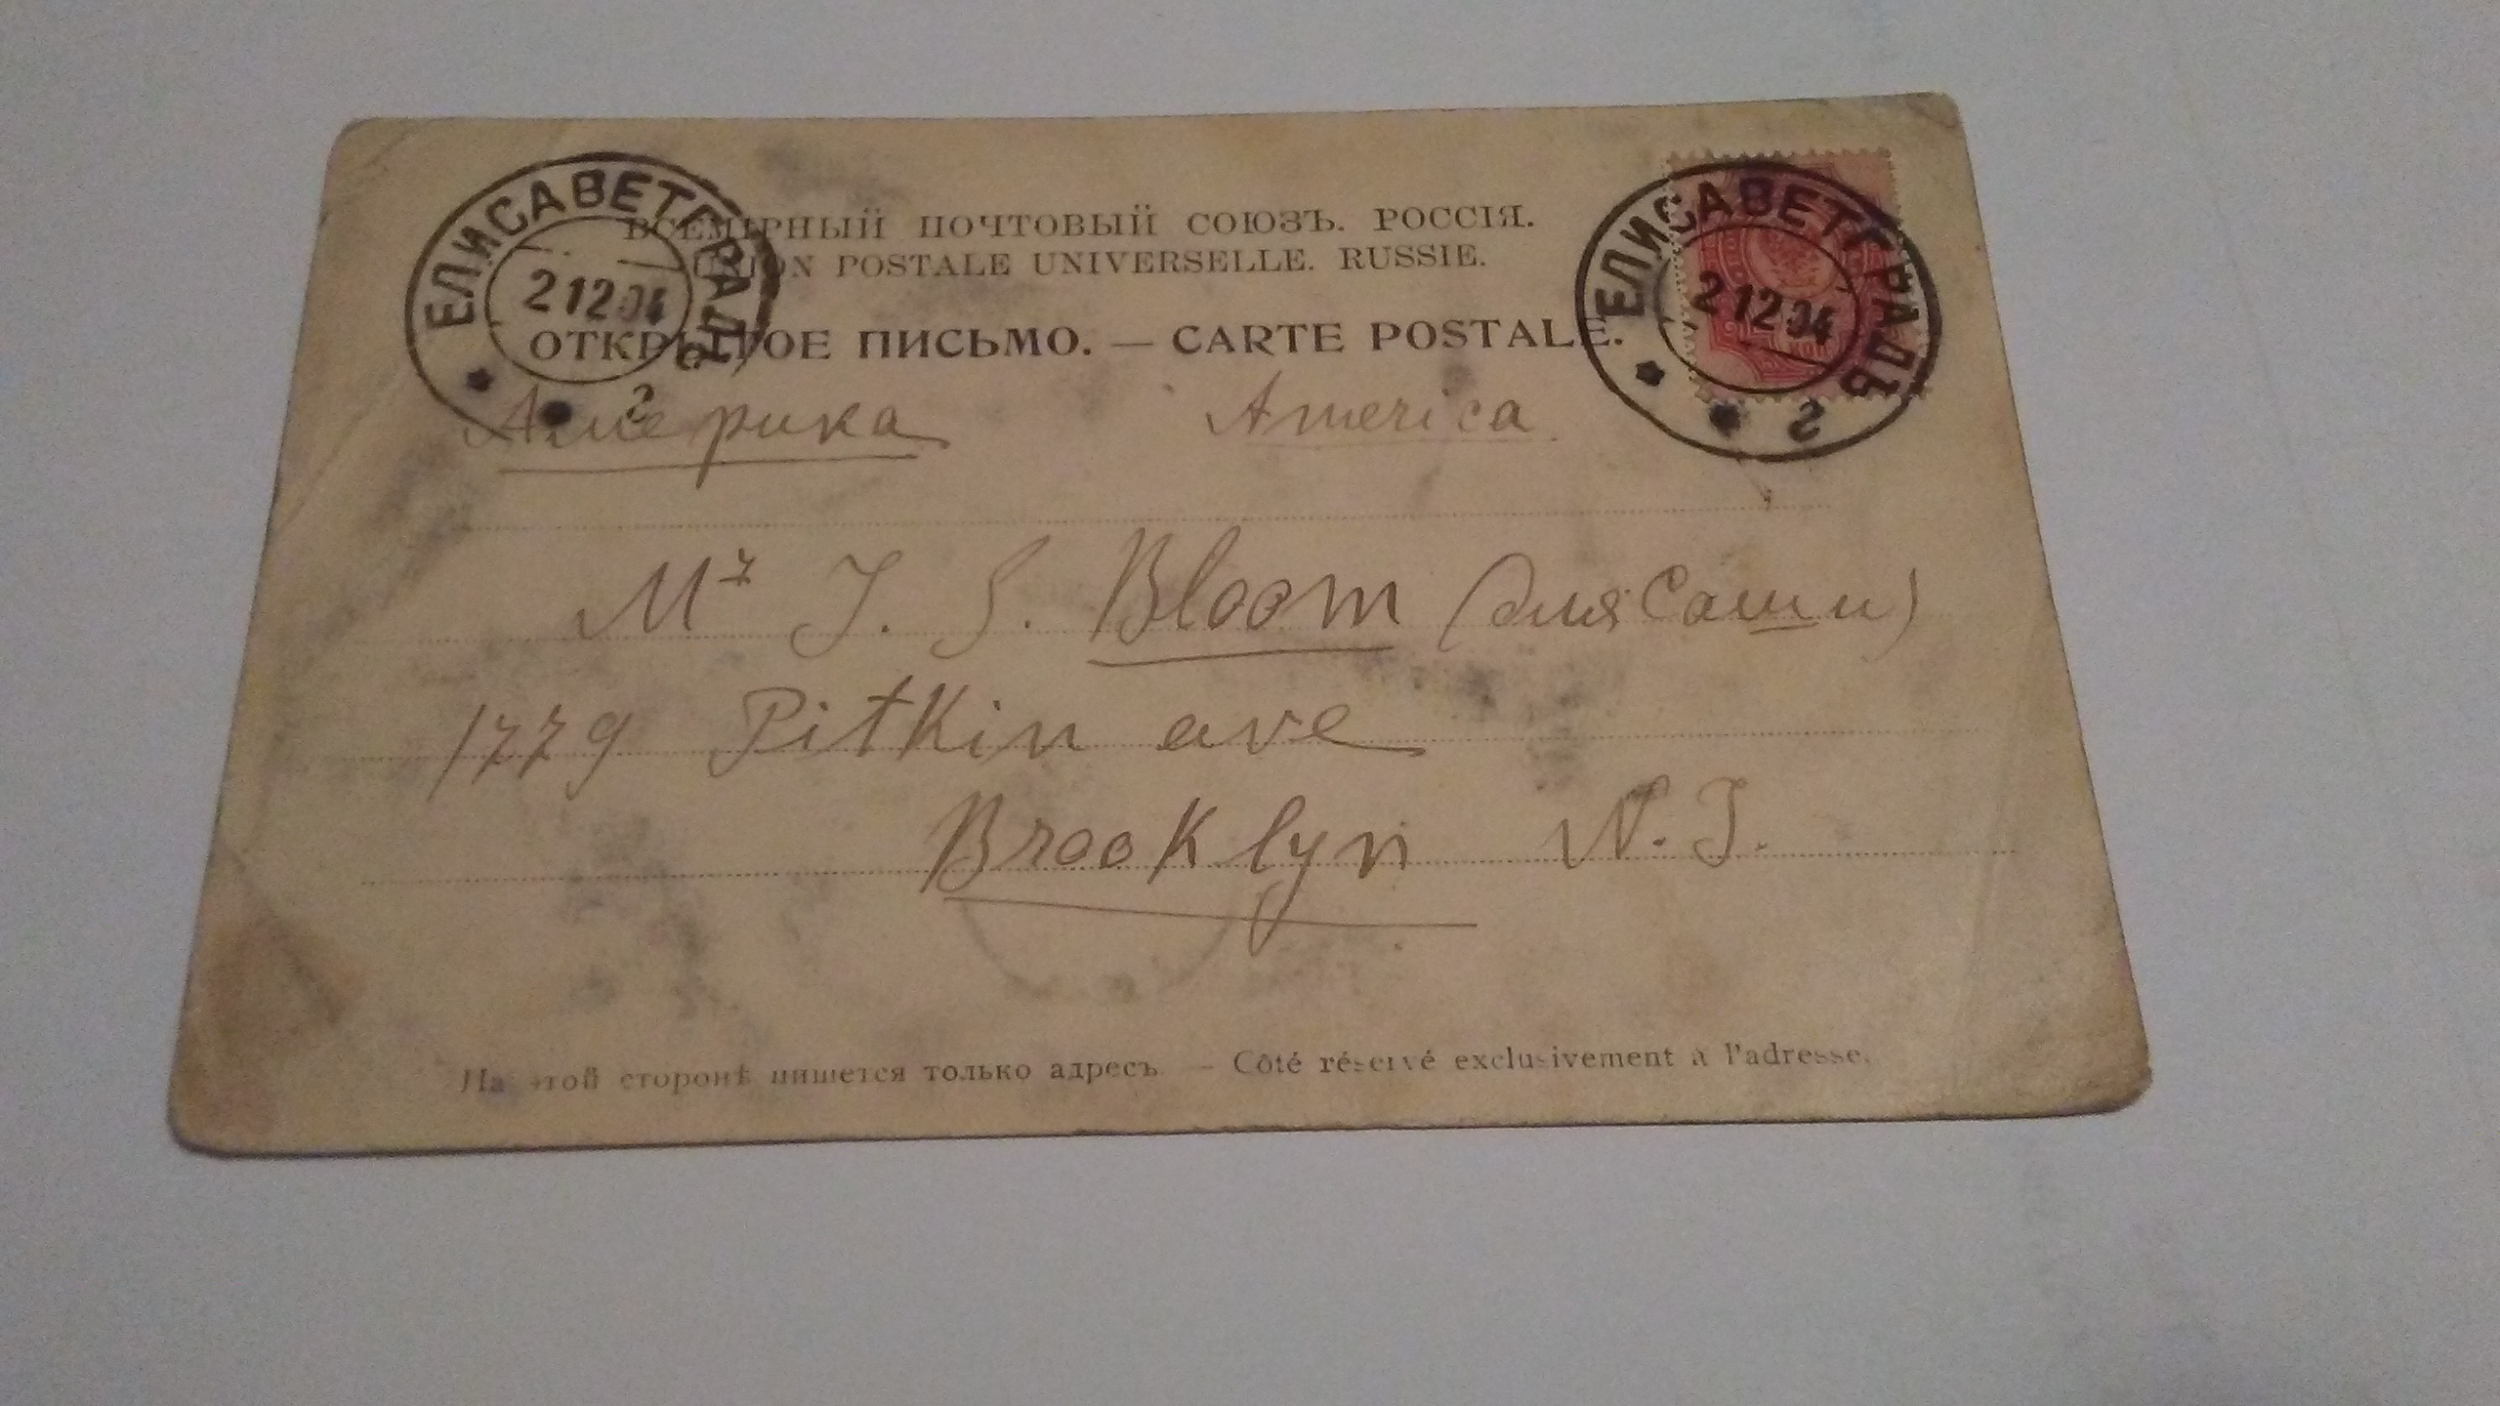 ЕЛИСАВЕТГРАДЪ
2 12 04
2
ЕЛИСАВЕТГРАДЪ
2 12 04
2
ВСЕМІРНЫЙ ПОЧТОВЫЙ СОЮЗЪ. РОССІЯ.
UNION POSTALE UNIVERSELLE. RUSSIE.
ОТКРЫТОЕ ПИСЬМО. — CARTE POSTALE.
Америка America.
Mr J. S. Bloom (для Саши)
1779 Pitkin ave
Brooklyn N. J.
На этой сторонѣ пишется только адресъ. — Côté réservé exclusivement à l'adresse.